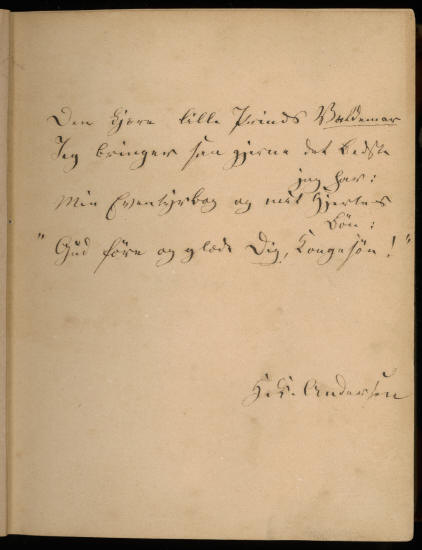 Den kjære lille Prinds Valdemar
Jeg bringer saa gjerne det bedste
jeg har:
Min Eventyrbog og mit Hjertes
Bøn:
"Gud føre og glæde Dig, Kongesøn!"
H. C. Andersen